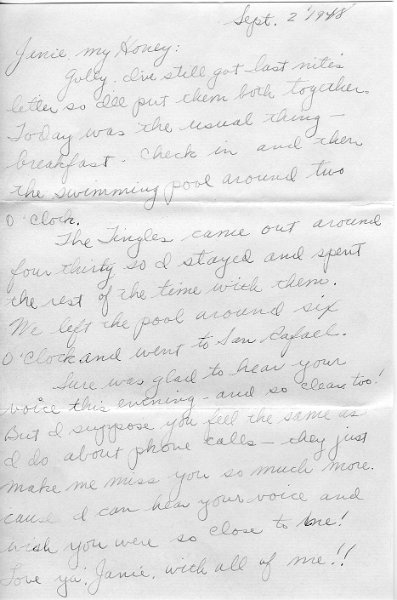 Sept. 2 1948
Janie my Honey:
Golly. I've still got last nites
letter so I'll put them both together.
Today was the usual thing -
breakfast. Check in and then
the swimming pool around two
O'clock.
The Tingles came out around
four thirty so I stayed and spent
the rest of the time with them.
We left the pool around six
O'clock and went to San Rafael.
Sure was glad to hear your
voice this evening - and so clear too!
But I suppose you feel the same as
I do about phone calls - they just
make me miss you so much more.
cause I can hear your voice and
wish you were so close to me!
Love ya! Janie, with all of me!!